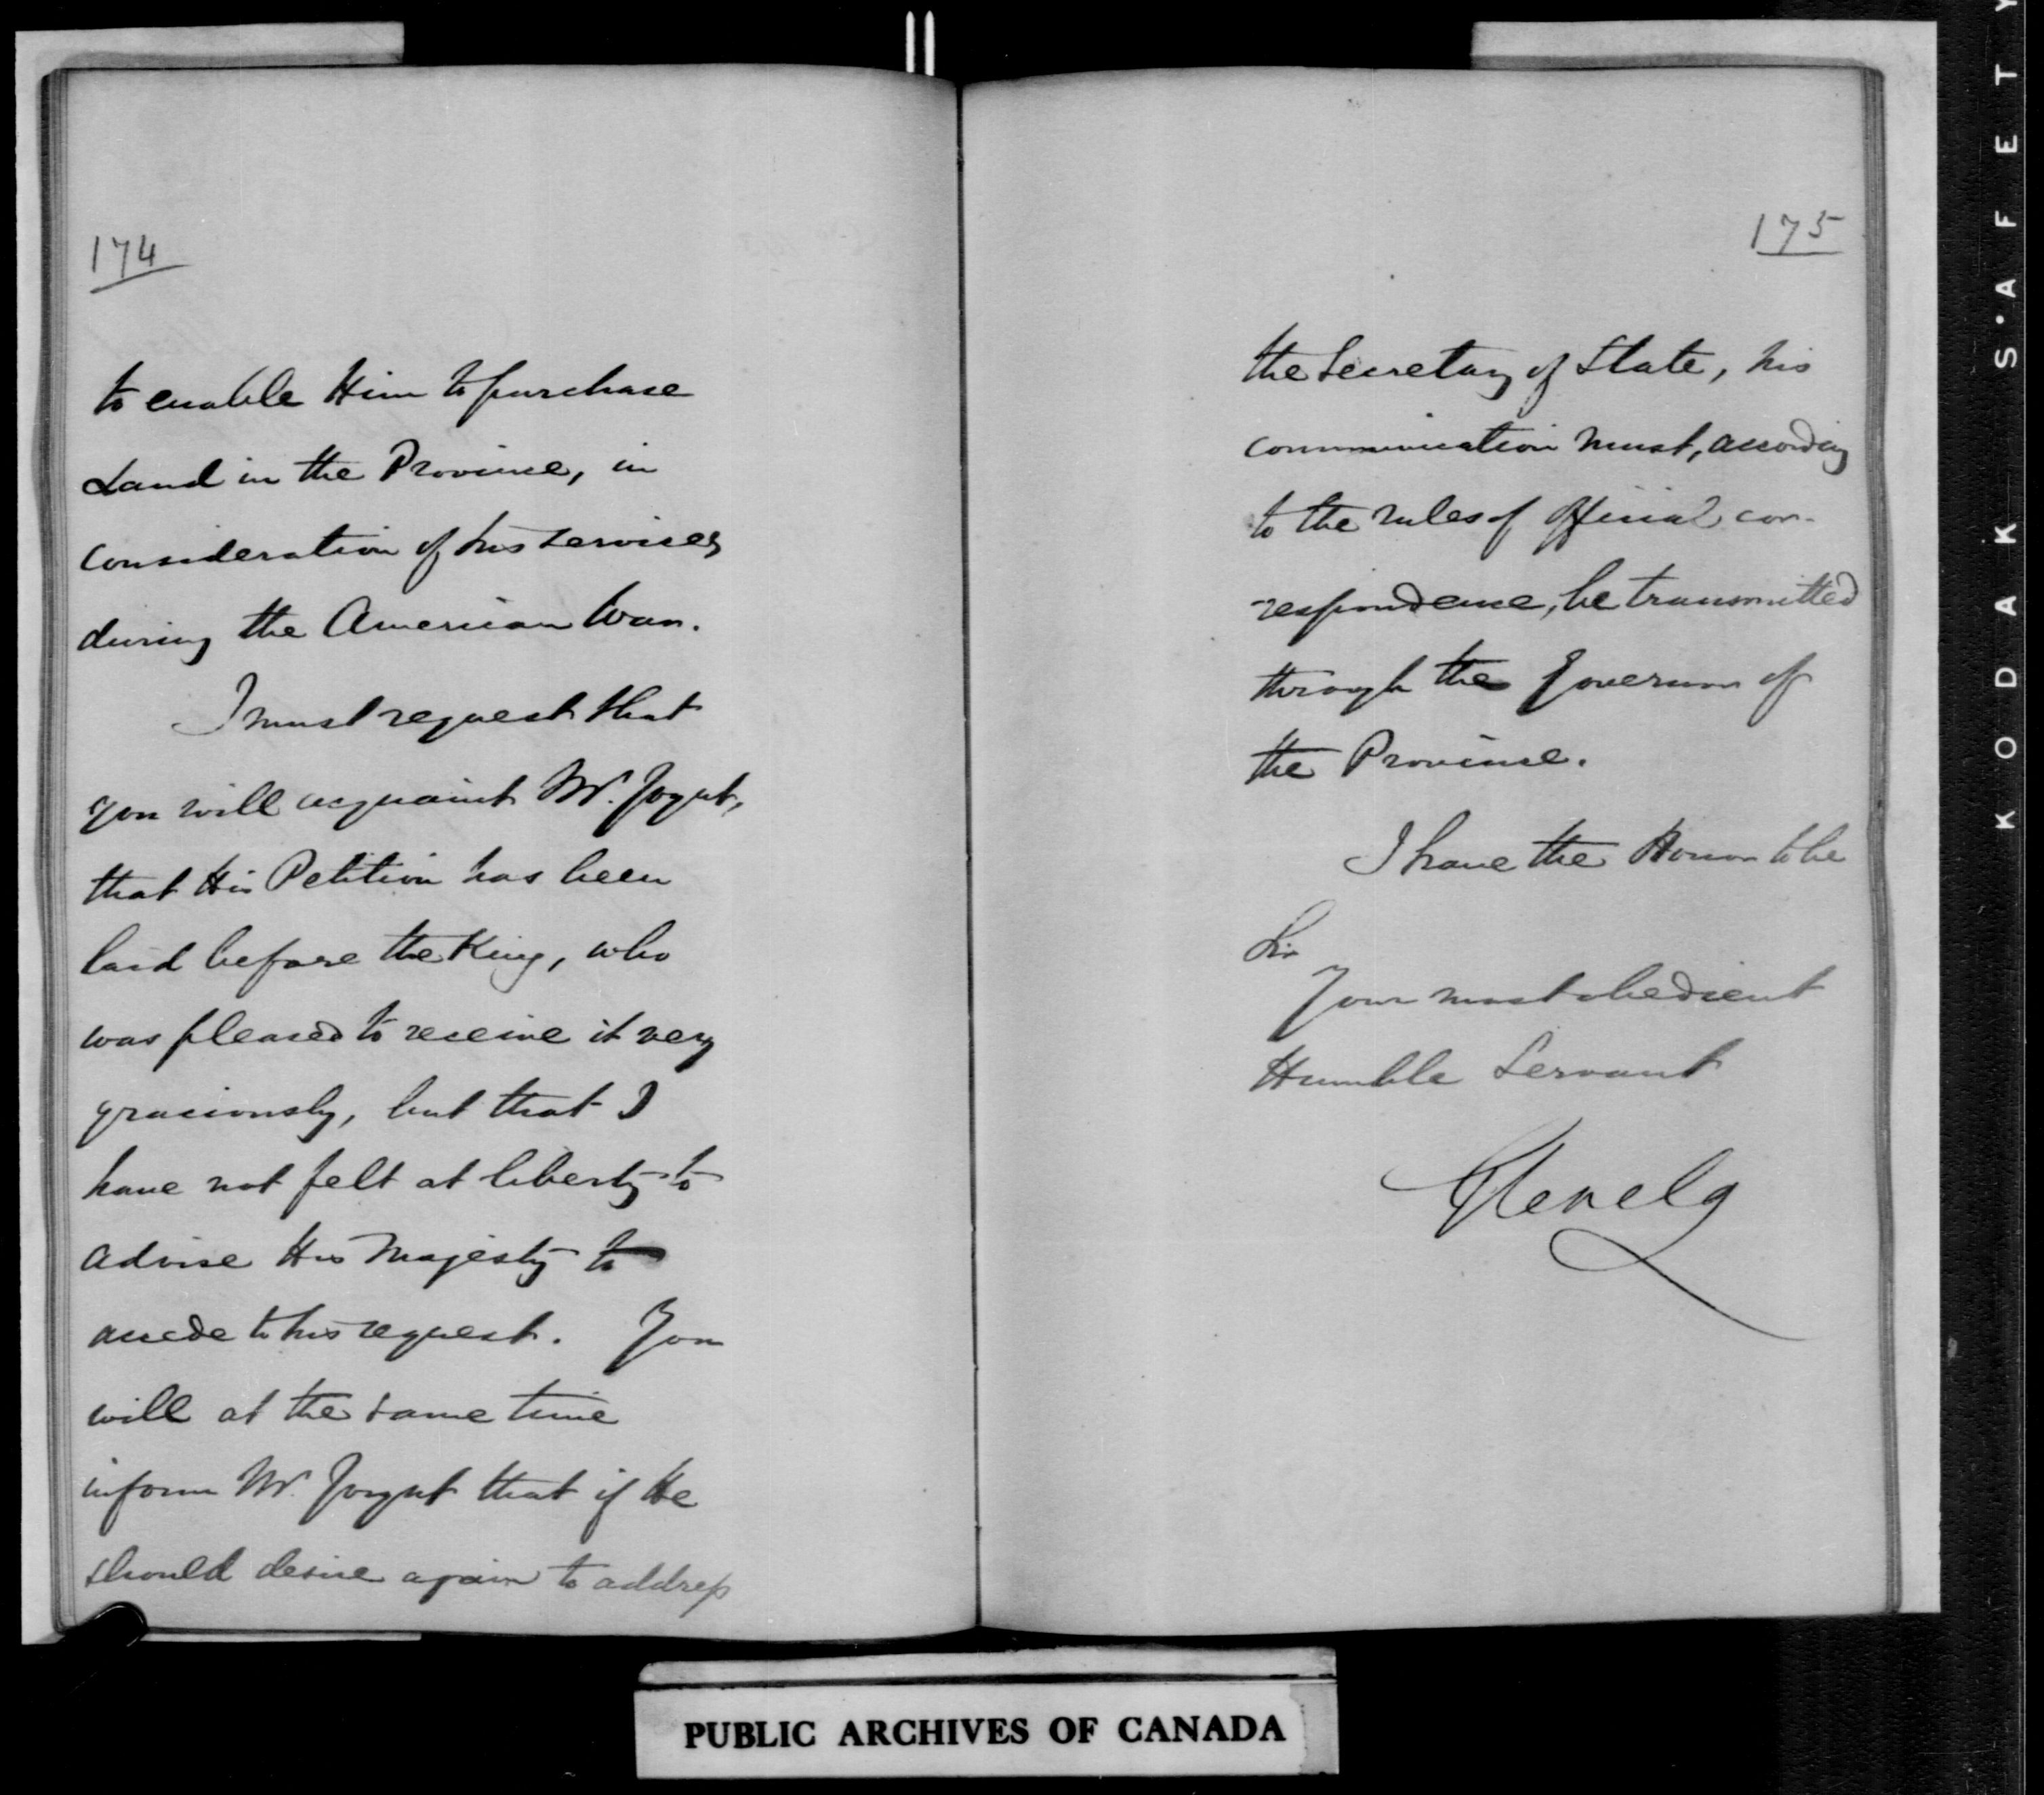 174
to enable Him to purchase
Land in the Province, in
consideration of his services
during the American War.
I must request that
you will acquaint Mr.
that His Petition has been
laid before the King, who
was pleased to receive it very
graciously, but that I
have not felt at liberty to
advise His Majesty to
accede to his request. You
will at the same time
inform Mr. that if He
should desire again to address
175
the Secretary of State, his
communication must, according
to the rules of official cor-
respondence, be transmitted
through the Governor of
the Province.
I have the Honor to be
Sir
Your most obedient
Humble Servant
Glenelg
PUBLIC ARCHIVES OF CANADA
KODAK S'AFETY